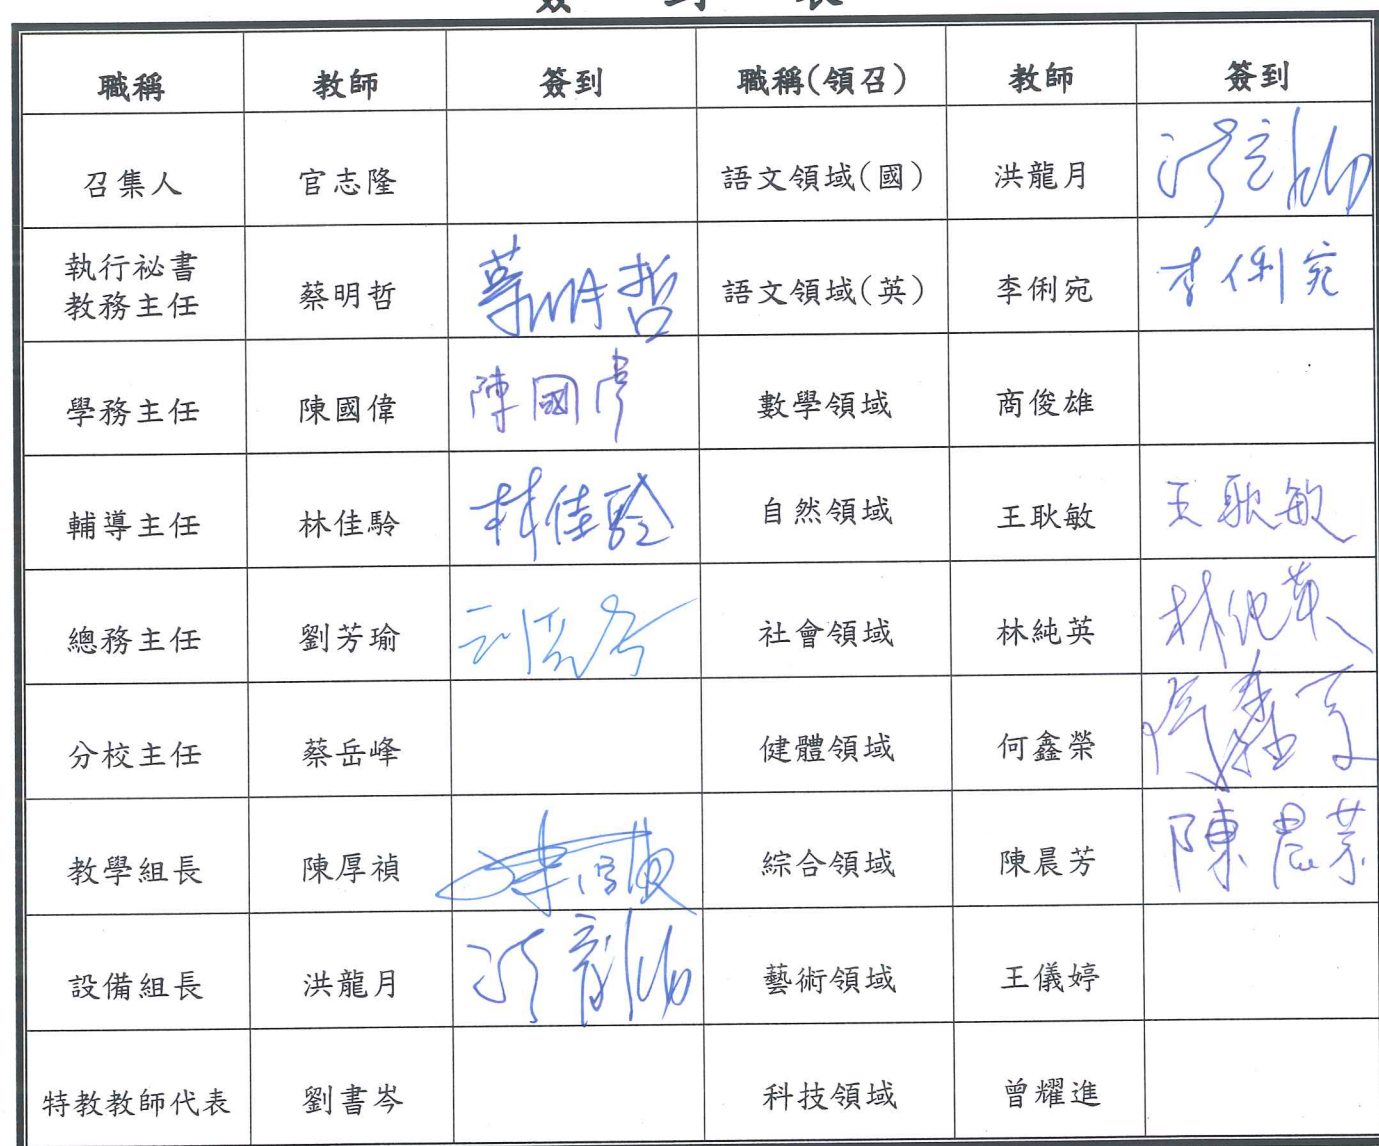 簽到表
職稱 教師 簽到 職稱(領召) 教師 簽到
召集人 官志隆 語文領域(國) 洪龍月
執行祕書
教務主任 蔡明哲 蔡明哲 語文領域(英) 李俐宛 李俐宛
學務主任 陳國偉 陳國偉 數學領域 商俊雄
輔導主任 林佳駖 林佳駖 自然領域 王耿敏 王耿敏
總務主任 劉芳瑜 社會領域 林純英 林純英
分校主任 蔡岳峰 健體領域 何鑫榮
教學組長 陳厚禎 綜合領域 陳晨芳 陳晨芳
設備組長 洪龍月 藝術領域 王儀婷
特教教師代表 劉書岑 科技領域 曾耀進